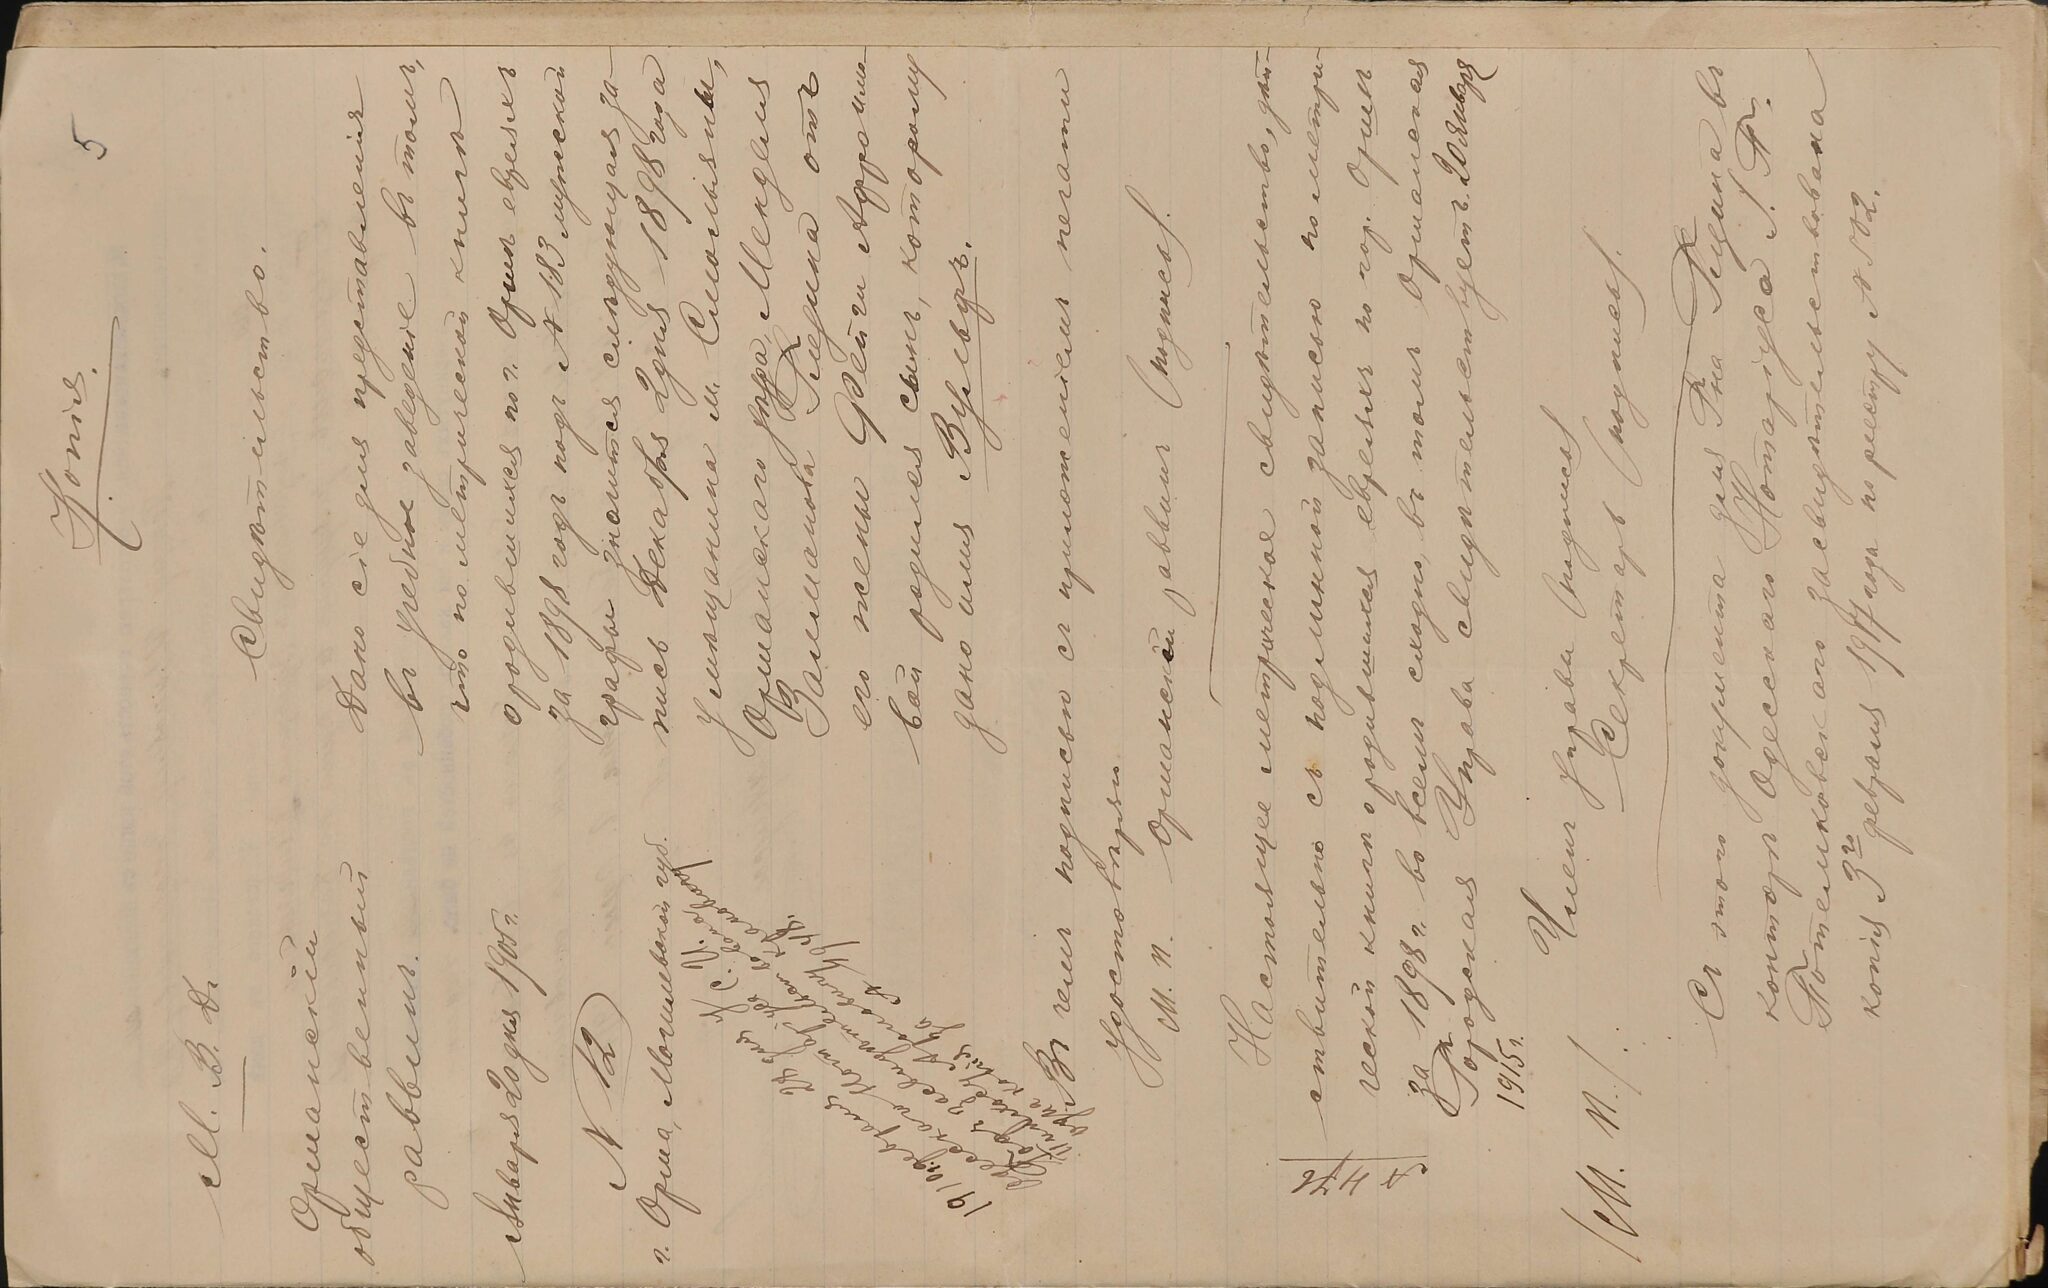 5
Копія.
М. В. Д.
Оршанскій
общественный
раввинъ.
Января 20 дня 1905 г.
N 12
г. Орша, Могилевской губ.
Свидѣтельство.
Дано сіе для представленія
въ учебное заведеніе въ томъ,
что по метрической книгѣ
о родившихся по г. Оршѣ евреяхъ
за 1898 годъ подъ N 183 мужской
графы значится слѣдующая за-
пись Декабря 2 дня 1898 года
у мѣщанина м. Смольяны,
Оршанскаго уѣзда, Менделя
Залманова Гледина отъ
его жены Фейги Афроимо-
вой родился сынъ, которому
дано имя Вульфъ.
Въ чемъ подписью съ приложеніемъ печати
удостовѣряю
М. П. Оршанскій раввинъ (подпись).
Настоящее метрическое свидѣтельство, дѣй-
ствительно съ подлинной записью по метри-
ческой книгѣ о родившихся евреяхъ по гор. Оршѣ
за 1898 г. во всемъ сходно, въ томъ Оршанская
Городская Управа свидѣтельствуетъ. 20 Января
1915 г.
N 476
Членъ Управы (подпись)
(М. П.) Секретарь (подпись).
Съ этого документа для Г-на Гледина въ
конторѣ Одесскаго Нотаріуса Г. Г.
Потемковскаго засвидѣтельствована
копія 3го февраля 1917 года по реестру N 502.